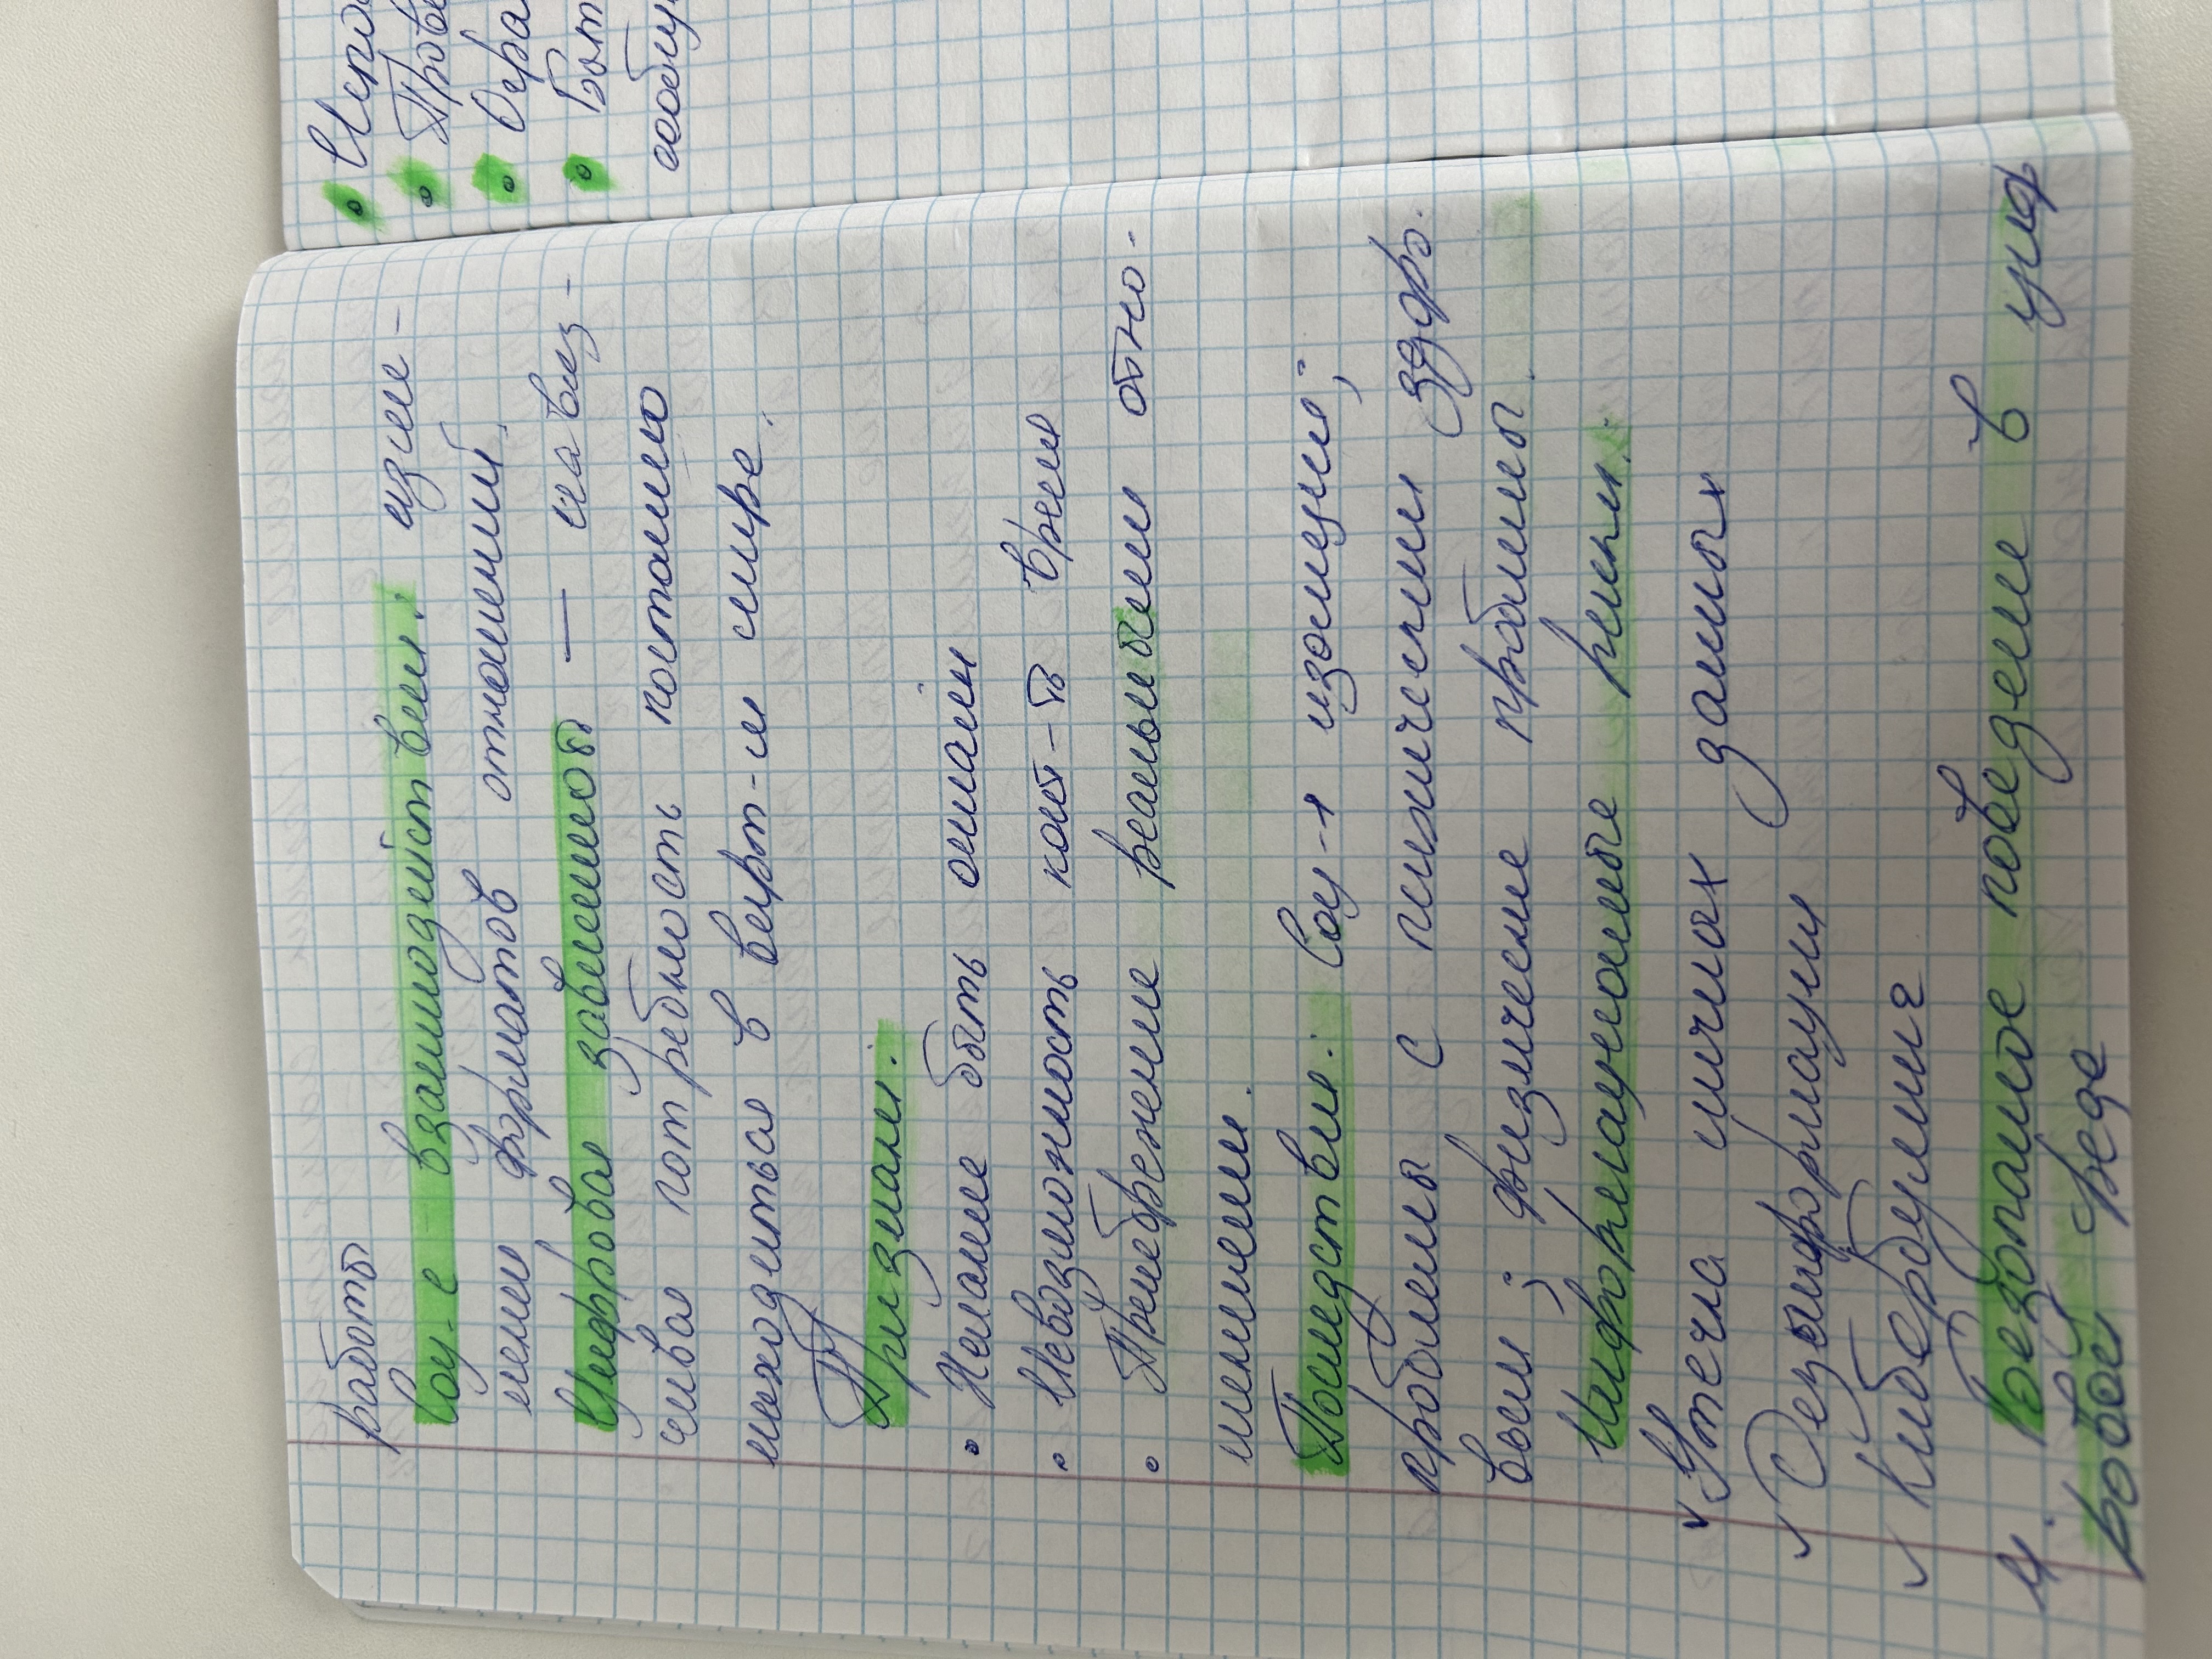 работы
Соц-е взаимодействия: изме-
нение форматов отношений.
Цифровая зависимость — навяз-
чивая потребность постоянно
находиться в вирт-м мире.
Признаки:
• Желание быть онлайн
• Невозможность конт-ть время
• Пренебрежение реальными отно-
шениями.
Последствия: Соц-я изоляция;
проблемы с психическим здор.
вьем; физические проблемы.
Информационные риски:
✓ Утечка личных данных
✓ Дезинформации
✓ Кибербуллинг
4. Безопасное поведение в циф
ровой среде
• Испо
• Прове
• Огра
• Быт
сообщ